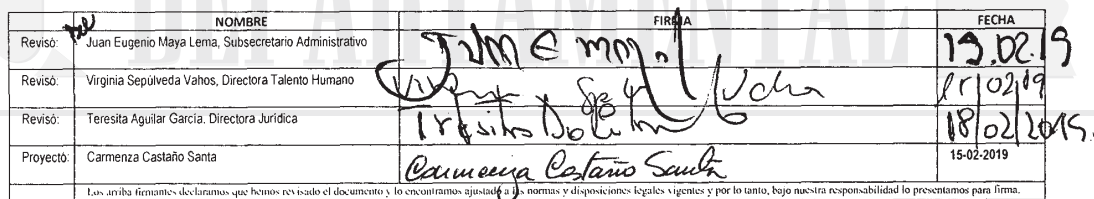 NOMBRE FIRMA FECHA
Revisó: Juan Eugenio Maya Lema, Subsecretario Administrativo 19.02.19
Revisó: Virginia Sepúlveda Vahos, Directora Talento Humano 02/19
Revisó: Teresita Aguilar García. Directora Jurídica 18/02/2019.
Proyectó: Carmenza Castaño Santa Carmenza Castaño Santa 15-02-2019
Los arriba firmantes declaramos que hemos revisado el documento y lo encontramos ajustado a las normas y disposiciones legales vigentes y por lo tanto, bajo nuestra responsabilidad lo presentamos para firma.